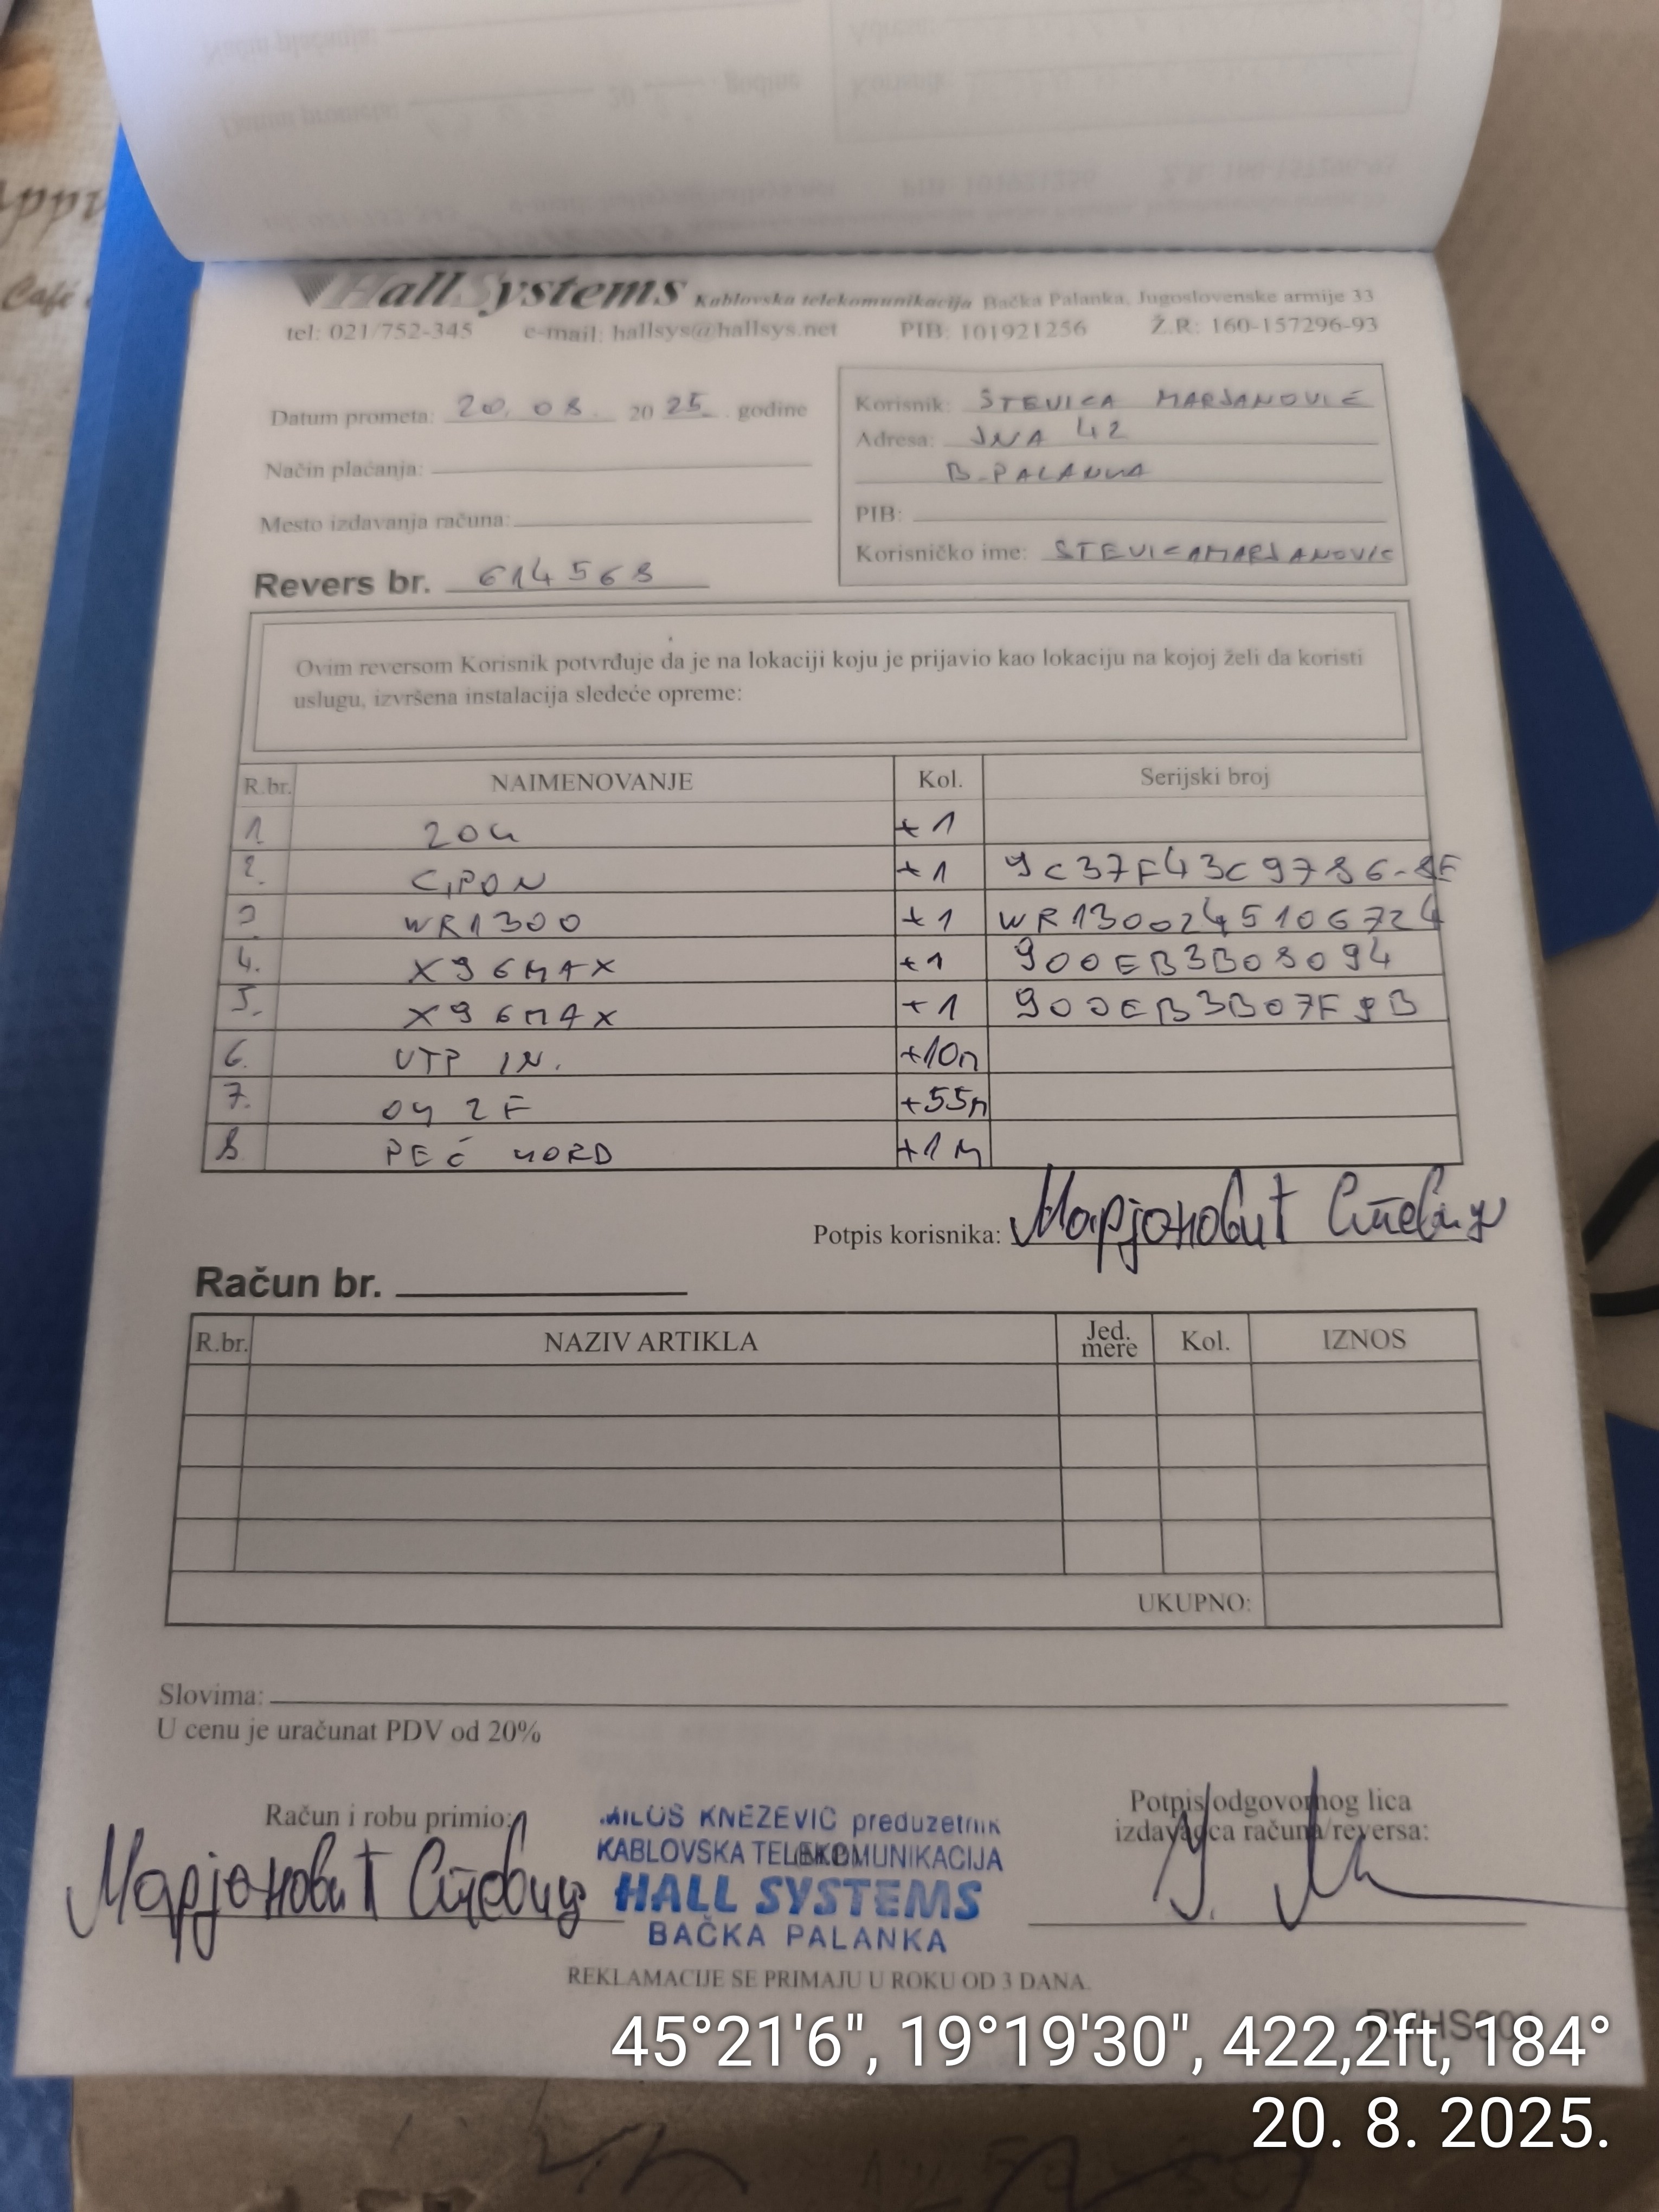 Hall Systems Kablovska telekomunikacija Bačka Palanka, Jugoslovenske armije 33
tel: 021/752-345 e-mail: hallsys@hallsys.net PIB: 101921256 Ž.R: 160-157296-93
Datum prometa: 20. 08. 20 25. godine
Način plaćanja:
Mesto izdavanja računa:
Revers br. 614568
Korisnik: STEVICA MARJANOVIĆ
Adresa: JNA 42
B. PALANKA
PIB:
Korisničko ime: STEVICAMARJANOVIC
Ovim reversom Korisnik potvrđuje da je na lokaciji koju je prijavio kao lokaciju na kojoj želi da koristi
uslugu, izvršena instalacija sledeće opreme:
R.br. NAIMENOVANJE Kol. Serijski broj
1. +1
2. GPON +1 9C37F43C9786-8F
3. WR1300 +1 WR1300245106724
4. X96MAX +1 900EB3B08094
5. X96MAX +1 900EB3B07F9B
6. UTP IN. +10m
7. 2F +55m
8 +1
Potpis korisnika: Марјановић Стевица
Račun br.
R.br. NAZIV ARTIKLA Jed. mere Kol. IZNOS
UKUPNO:
Slovima:
U cenu je uračunat PDV od 20%
Račun i robu primio:
Марјановић Стевица
MILOŠ KNEŽEVIĆ preduzetnik
KABLOVSKA TELEKOMUNIKACIJA
HALL SYSTEMS
BAČKA PALANKA
Potpis odgovornog lica
izdavaoca računa/reversa:
REKLAMACIJE SE PRIMAJU U ROKU OD 3 DANA.
45°21'6", 19°19'30", 422,2ft, 184°
20. 8. 2025.